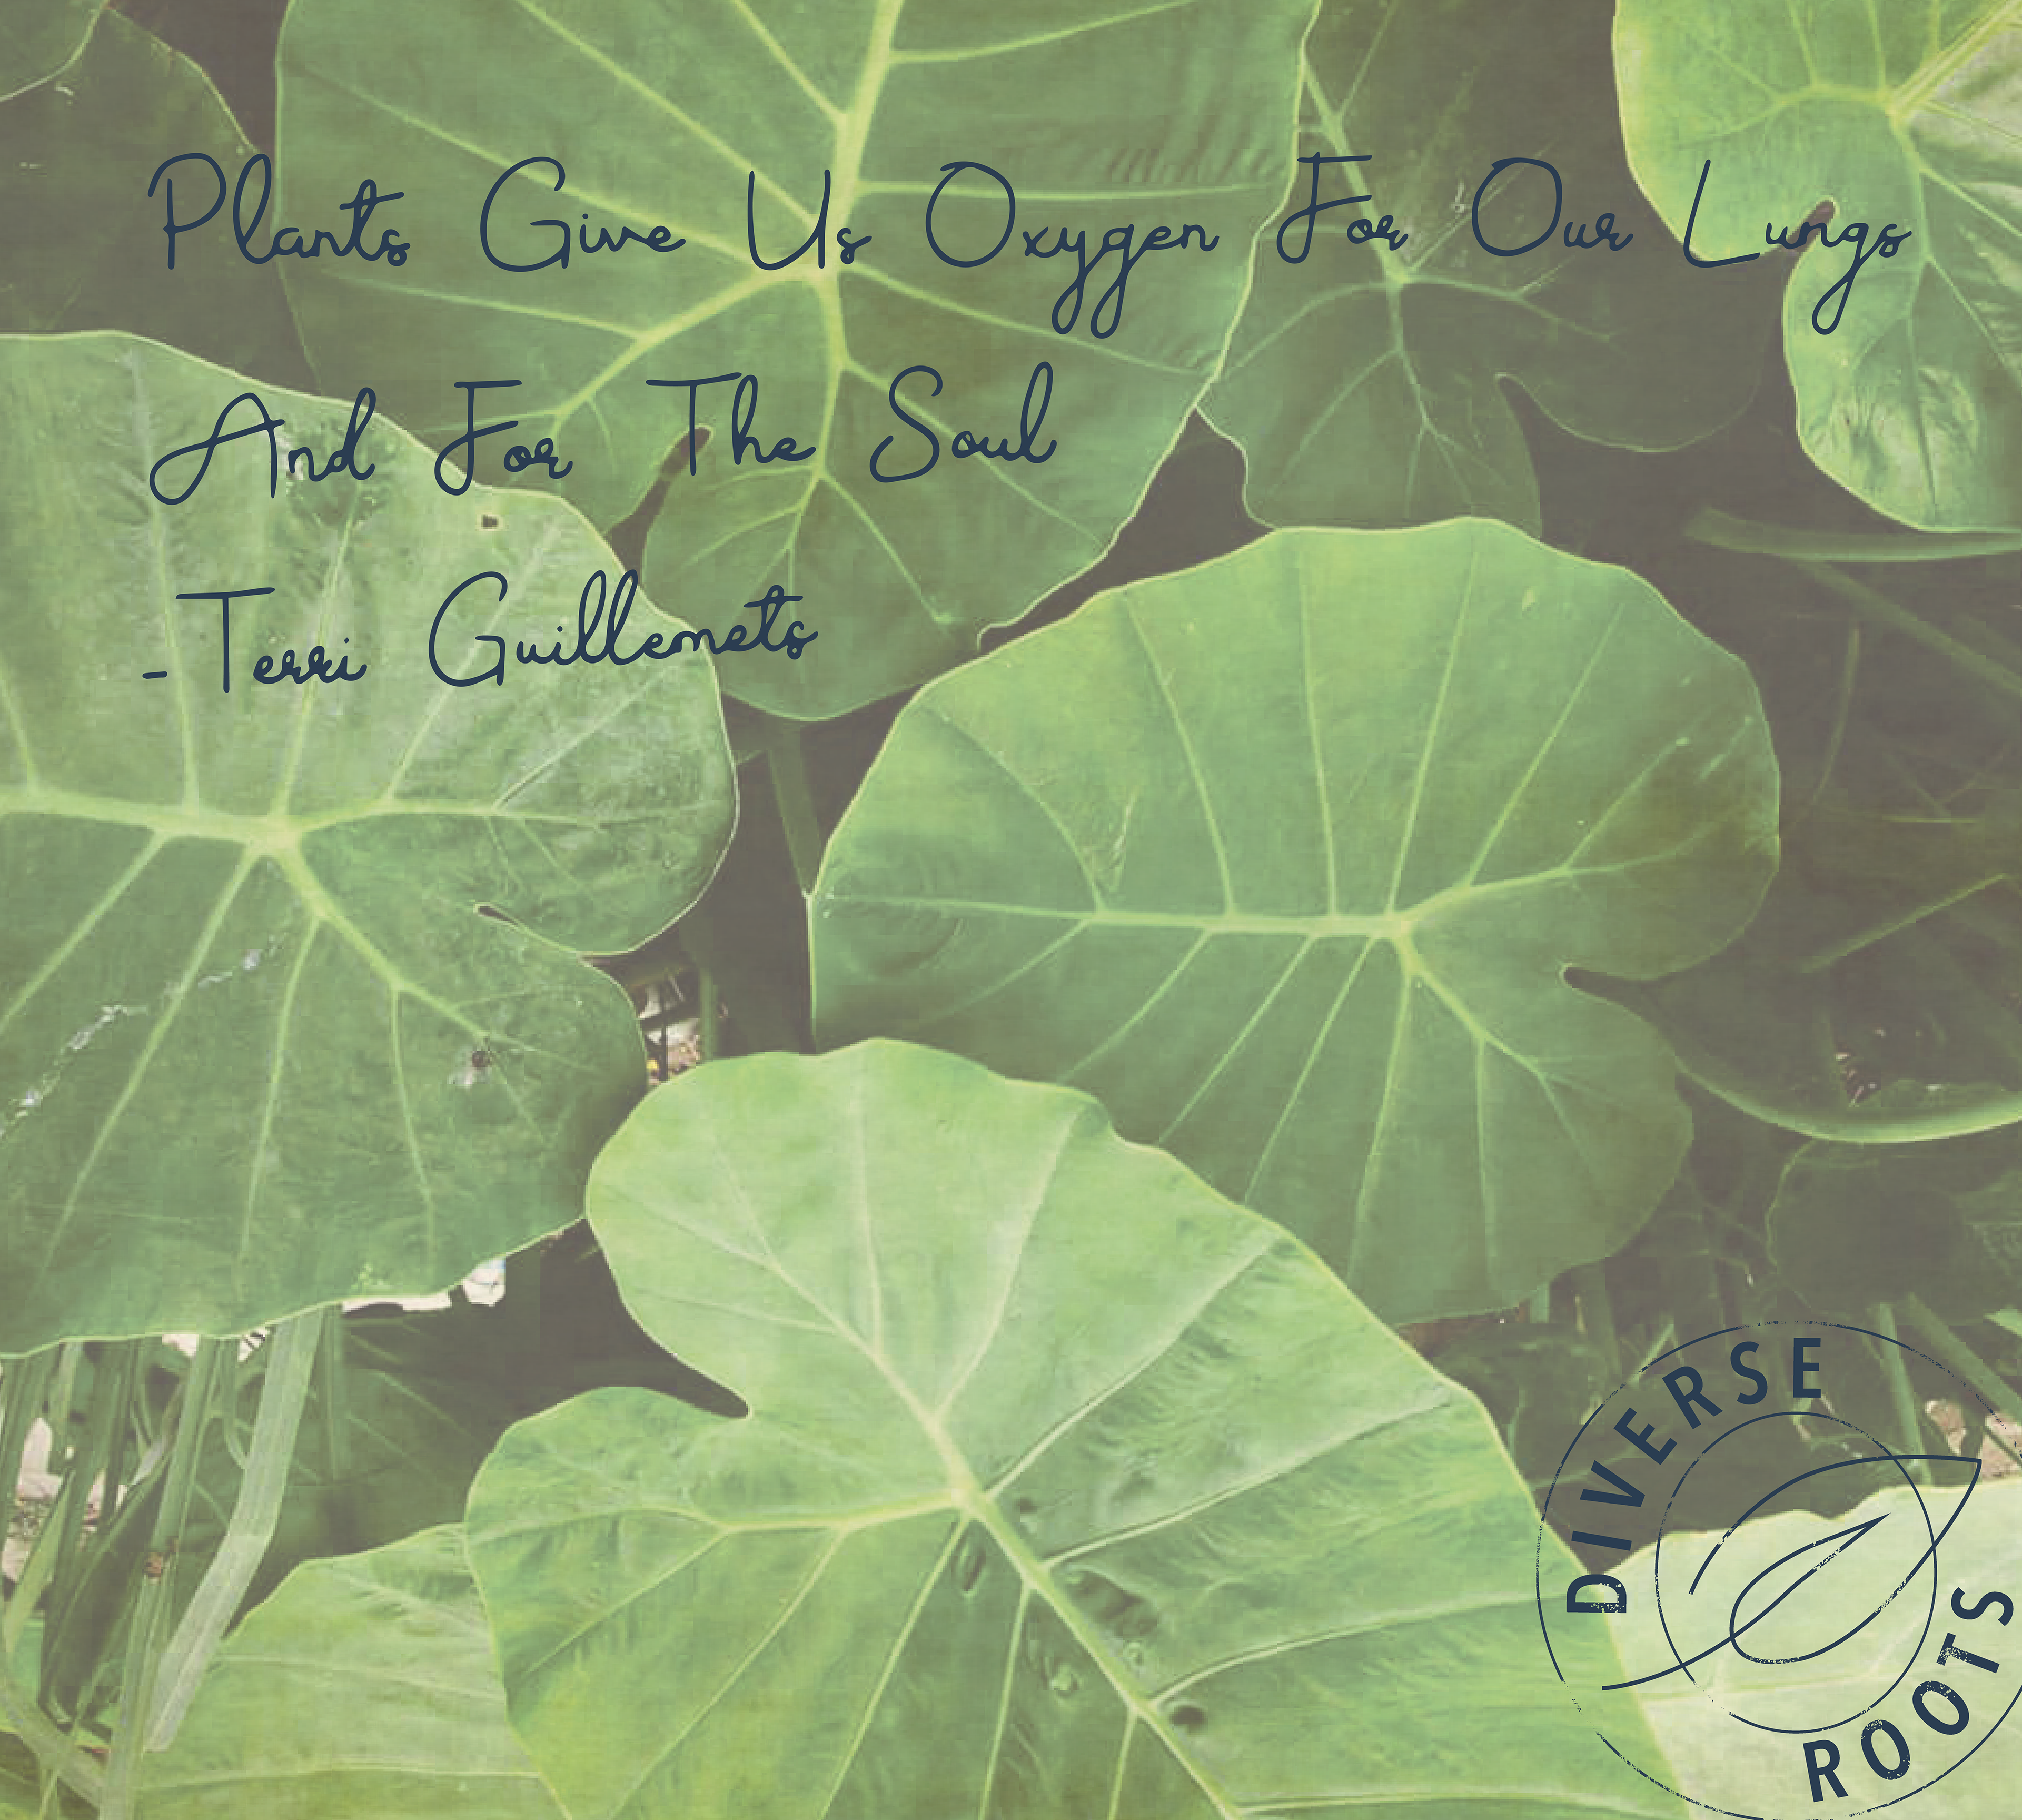 Plants Give Us Oxygen For Our Lungs
And For The Soul
-Terri Guillemets
DIVERSE
ROOTS